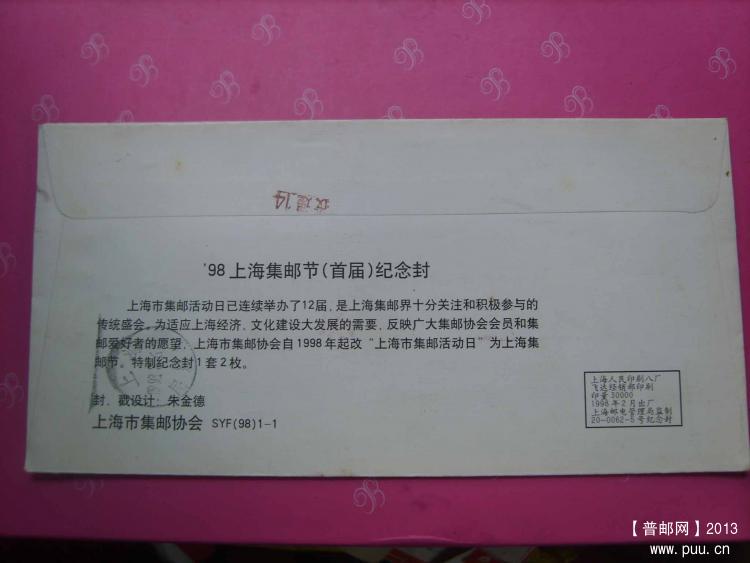 '98上海集邮节(首届)纪念封
上海市集邮活动日已连续举办了12届，是上海集邮界十分关注和积极参与的
传统盛会。为适应上海经济、文化建设大发展的需要，反映广大集邮协会会员和集
邮爱好者的愿望，上海市集邮协会自1998年起改“上海市集邮活动日”为上海集
邮节。特制纪念封1套2枚。
封、戳设计：朱金德
上海市集邮协会 SYF(98)1-1
上海人民印刷八厂
飞达经销部印刷
印量30000
1998年2月出厂
上海邮电管理局监制
20-0062-5号纪念封
【普邮网】2013
www.puu.cn